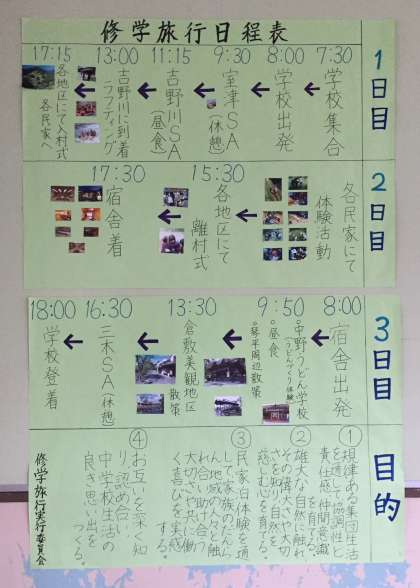 修学旅行日程表
1日目
7:30
学校集合
8:00
学校出発
9:30
室津SA
(休憩)
11:15
吉野川SA
(昼食)
13:00
吉野川に到着
ラフティング
17:15
各地区にて入村式
各民家へ
2日目
各民家にて
体験活動
15:30
各地区にて
離村式
17:30
宿舎着
3日目
8:00
宿舎出発
9:50
中野うどん学校
(うどんづくり体験)
昼食
琴平周辺散策
13:30
倉敷美観地区
散策
16:30
三木SA(休憩)
18:00
学校登着
目的
①規律ある集団生活
を通して協調性と
責任感、仲間意識
を育てる。
②雄大な自然に触れ
その偉大さや大切
さを知り自然を
慈しむ心を育てる。
③民家泊体験を通
して家族のだんら
ん、地域の人々と触
れ合い助け合う
大切さや共に働
く喜びを実感
する。
④お互いを深く知
り、認め合い、
中学校生活の
良き思い出を
つくる。
修学旅行実行委員会